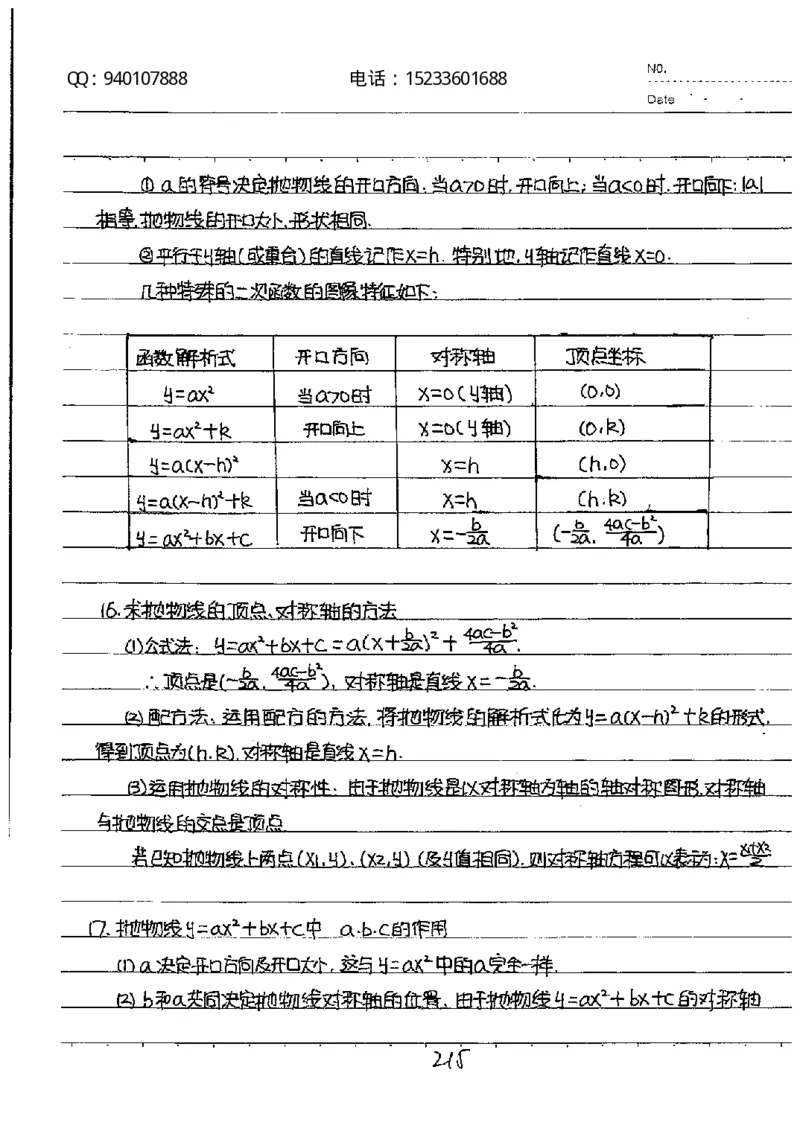 QQ：940107888 电话：15233601688 NO.
Date
① a的符号决定抛物线的开口方向．当a>0时，开口向上；当a<0时．开口向下；|a|
相等，抛物线的开口大小、形状相同．
②平行于y轴(或重合)的直线记作x=h．特别地，y轴记作直线x=0．
几种特殊的二次函数的图像特征如下：
函数解析式 开口方向 对称轴 顶点坐标
y=ax² 当a>0时 x=0(y轴) (0,0)
y=ax²+k 开口向上 x=0(y轴) (0,k)
y=a(x-h)² x=h (h,0)
y=a(x-h)²+k 当a<0时 x=h (h,k)
y=ax²+bx+c 开口向下 x=-b/2a (-b/2a, 4ac-b²/4a)
16.求抛物线的顶点、对称轴的方法
(1)公式法：y=ax²+bx+c=a(x+b/2a)²+4ac-b²/4a．
∴顶点是(-b/2a, 4ac-b²/4a)，对称轴是直线x=-b/2a．
(2)配方法：运用配方的方法，将抛物线的解析式化为y=a(x-h)²+k的形式，
得到顶点为(h,k)，对称轴是直线x=h．
(3)运用抛物线的对称性：由于抛物线是以对称轴为轴的轴对称图形，对称轴
与抛物线的交点是顶点
若已知抛物线上两点(x1,y)、(x2,y)(及y值相同)，则对称轴方程可以表示为：x=x1+x2/2
17.抛物线y=ax²+bx+c中 a.b.c的作用
(1)a决定开口方向及开口大小，这与y=ax²中的a完全一样．
(2)b和a共同决定抛物线对称轴的位置．由于抛物线y=ax²+bx+c的对称轴
215